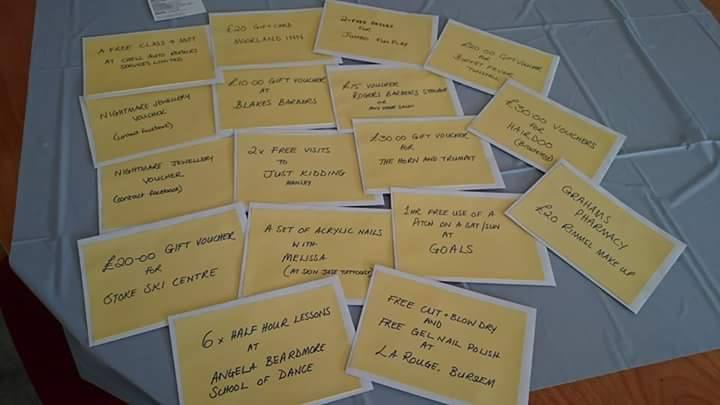 A FREE CLASS 4 MOT
AT CHELL AUTO REPAIRS
SERVICES LIMITED
£20 GIFTCARD
MOORLAND INN
2 x FREE PASSES
FOR
JUMBO FUN PLAY
£20-00 GIFT VOUCHER
FOR
TUNSTALL
NIGHTMARE JEWELLERY
VOUCHER
(contact facebook)
£10-00 GIFT VOUCHER
AT
BLAKES BARBERS
£15 VOUCHER
ROGERS BARBERS
OR
£30:00 VOUCHERS
FOR
HAIRDOO
NIGHTMARE JEWELLERY
VOUCHER
(contact facebook)
2x FREE VISITS
TO
JUST KIDDING
HANLEY
£30:00 GIFT VOUCHER
FOR
THE HORN AND TRUMPET
GRAHAMS
PHARMACY
£20 RIMMEL MAKE UP
£20-00 GIFT VOUCHER
FOR
STOKE SKI CENTRE
A SET OF ACRYLIC NAILS
WITH
MELISSA
(AT SKIN JABZ TATTOOIST)
1HR FREE USE OF A
PITCH ON A SAT/SUN
AT
GOALS
6 x HALF HOUR LESSONS
AT
ANGELA BEARDMORE
SCHOOL OF DANCE
FREE CUT + BLOW DRY
AND
FREE GEL NAIL POLISH
AT
LA ROUGE, BURSLEM